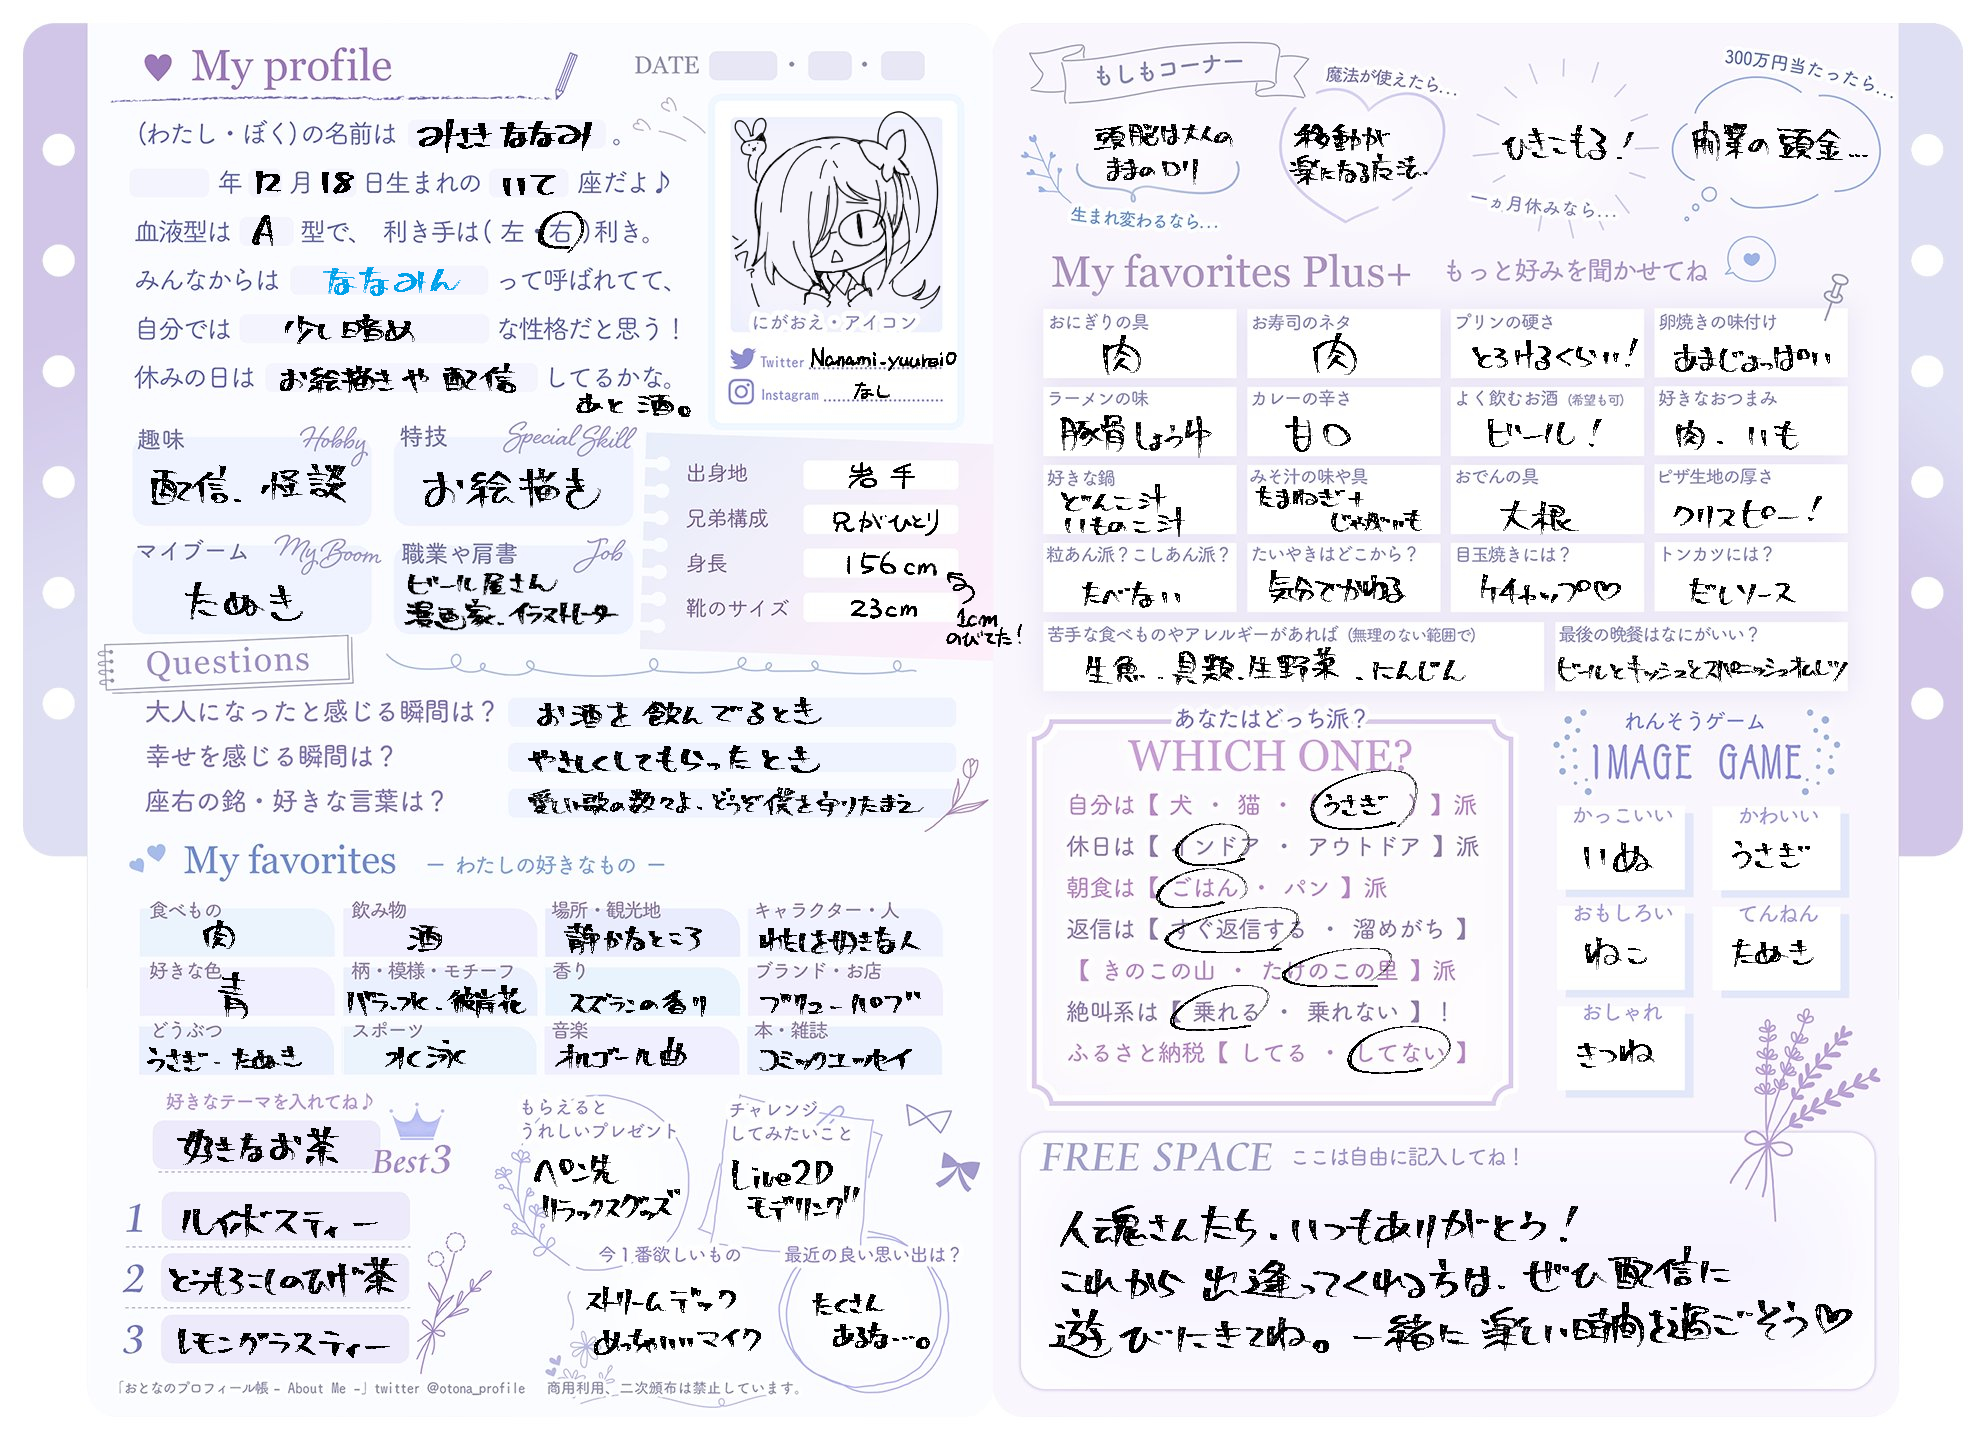 My profile
DATE ・ ・
(わたし・ぼく)の名前は みさきななみ 。
年 12 月 18 日生まれの いて 座だよ♪
血液型は A 型で、 利き手は( 左・右 )利き。
みんなからは ななみん って呼ばれてて、
自分では 少し暗め な性格だと思う！
休みの日は お絵描きや配信 してるかな。
あと酒。
にがおえ・アイコン
Twitter Nanami-yuurei0
Instagram なし
趣味 Hobby
配信、怪談
特技 Special Skill
お絵描き
マイブーム My Boom
たぬき
職業や肩書 Job
ビール屋さん
漫画家、イラストレーター
出身地 岩手
兄弟構成 兄がひとり
身長 156cm
靴のサイズ 23cm
1cm
のびてた！
Questions
大人になったと感じる瞬間は？ お酒を飲んでるとき
幸せを感じる瞬間は？ やさしくしてもらったとき
座右の銘・好きな言葉は？ 愛しい歌の数々よ、どうぞ僕を守りたまえ
My favorites ー わたしの好きなもの ー
食べもの
肉
飲み物
酒
場所・観光地
静かなところ
キャラクター・人
わたしを好きな人
好きな色
青
柄・模様・モチーフ
バラ、水、彼岸花
香り
スズランの香り
ブランド・お店
ブリューパブ
どうぶつ
うさぎ・たぬき
スポーツ
水泳
音楽
オルゴール曲
本・雑誌
コミックエッセイ
好きなテーマを入れてね♪
好きなお茶
Best3
1 ルイボスティー
2 とうもろこしのひげ茶
3 レモングラスティー
もらえると
うれしいプレゼント
ペン先
リラックスグッズ
チャレンジ
してみたいこと
Live2D
モデリング
今1番欲しいもの
ストリームデック
めっちゃいいマイク
最近の良い思い出は？
たくさん
あるな…。
「おとなのプロフィール帳 - About Me -」twitter @otona_profile 商用利用、二次頒布は禁止しています。
もしもコーナー
頭脳は大人の
ままのロリ
生まれ変わるなら...
魔法が使えたら...
移動が
楽になる魔法
ひきこもる！
一ヵ月休みなら...
300万円当たったら...
開業の頭金…
My favorites Plus+ もっと好みを聞かせてね
おにぎりの具
肉
お寿司のネタ
肉
プリンの硬さ
とろけるくらい！
卵焼きの味付け
あまじょっぱい
ラーメンの味
豚骨しょうゆ
カレーの辛さ
甘口
よく飲むお酒（希望も可）
ビール！
好きなおつまみ
肉、いも
好きな鍋
どんこ汁
いものこ汁
みそ汁の味や具
たまねぎ+
じゃがいも
おでんの具
大根
ピザ生地の厚さ
クリスピー！
粒あん派？こしあん派？
たべない
たいやきはどこから？
気分でかわる
目玉焼きには？
ケチャップ♡
トンカツには？
だしソース
苦手な食べものやアレルギーがあれば（無理のない範囲で）
生魚、貝類、生野菜、にんじん
最後の晩餐はなにがいい？
ビールとキッシュとスパニッシュオムレツ
あなたはどっち派？
WHICH ONE?
自分は【 犬 ・ 猫 ・ うさぎ 】派
休日は【 インドア ・ アウトドア 】派
朝食は【 ごはん ・ パン 】派
返信は【 すぐ返信する ・ 溜めがち 】
【 きのこの山 ・ たけのこの里 】派
絶叫系は【 乗れる ・ 乗れない 】！
ふるさと納税【 してる ・ してない 】
れんそうゲーム
IMAGE GAME
かっこいい
いぬ
かわいい
うさぎ
おもしろい
ねこ
てんねん
たぬき
おしゃれ
きつね
FREE SPACE ここは自由に記入してね！
人魂さんたち、いつもありがとう！
これから出逢ってくれる方は、ぜひ配信に
遊びにきてね。一緒に楽しい時間を過ごそう♡